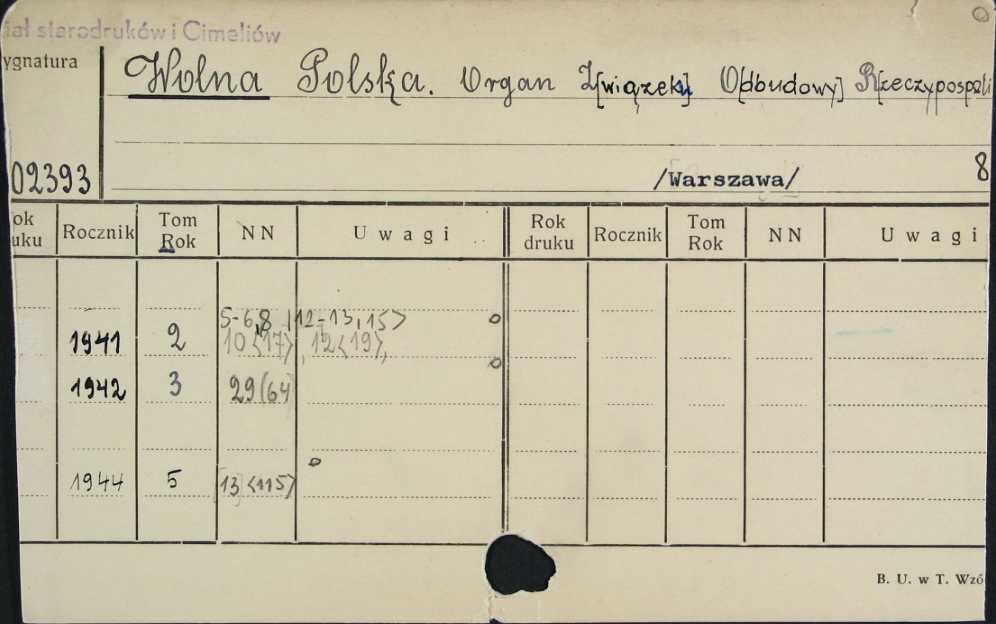 iał starodruków i Cimeliów
ygnatura
Wolna Polska. Organ Z[wiązeku] O[dbudowy] R[zeczypospoli
02393
/Warszawa/
8
ok Rocznik Tom NN Uwagi Rok Rocznik Tom NN Uwagi
uku Rok druku Rok
5-6,8 12-13,15>
1941 2 10<17>, 12<19>,
1942 3 29(64)
1944 5 [13]<115>
B. U. w T. Wzó